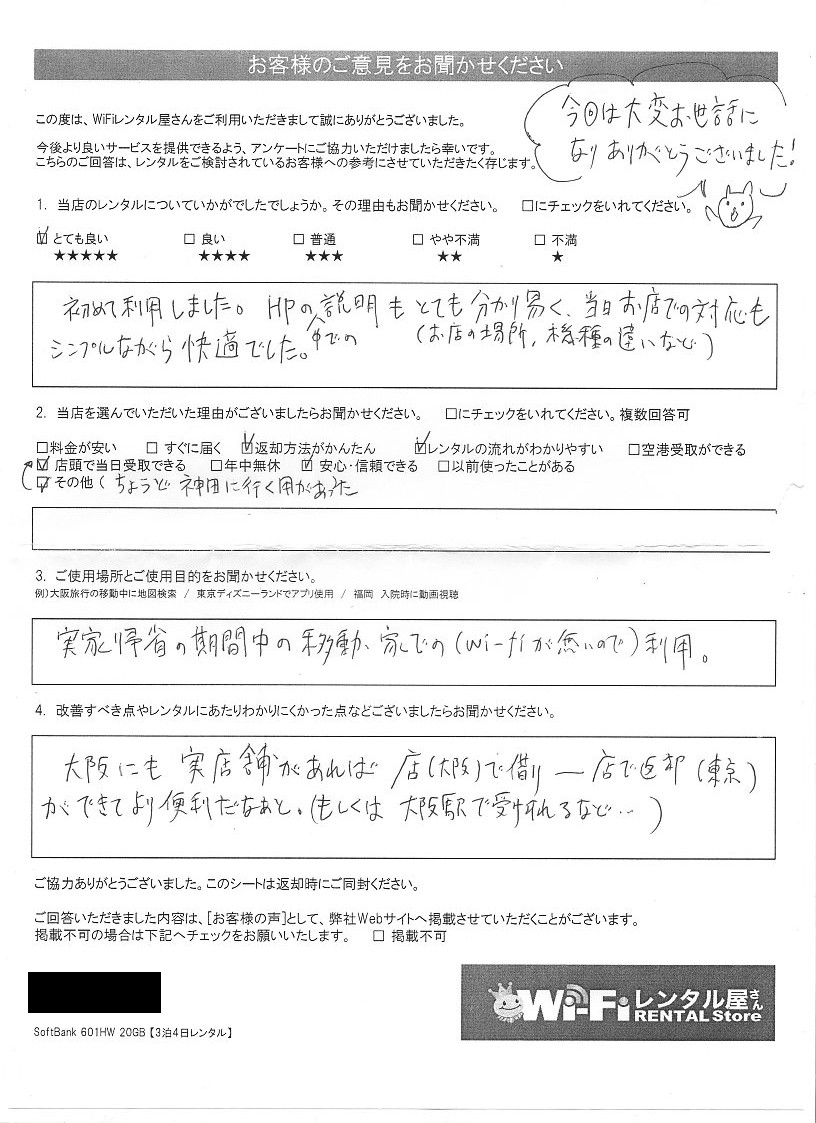 お客様のご意見をお聞かせください
今回は大変お世話に
なりありがとうございました!
この度は、WiFiレンタル屋さんをご利用いただきまして誠にありがとうございました。
今後より良いサービスを提供できるよう、アンケートにご協力いただけましたら幸いです。
こちらのご回答は、レンタルをご検討されているお客様への参考にさせていただきたく存じます。
1. 当店のレンタルについていかがでしたでしょうか。その理由もお聞かせください。 □にチェックをいれてください。
☑ とても良い □ 良い □ 普通 □ やや不満 □ 不満
★★★★★ ★★★★ ★★★ ★★ ★
初めて利用しました。HPの説明もとても分かり易く、当日お店での対応も
中での (お店の場所,機種の違いなど)
シンプルながら快適でした。
2. 当店を選んでいただいた理由がございましたらお聞かせください。 □にチェックをいれてください。複数回答可
□料金が安い □ すぐに届く ☑返却方法がかんたん ☑レンタルの流れがわかりやすい □空港受取ができる
☑ 店頭で当日受取できる □年中無休 ☑ 安心・信頼できる □以前使ったことがある
☑ その他 (ちょうど神田に行く用があった
3. ご使用場所とご使用目的をお聞かせください。
例)大阪旅行の移動中に地図検索 / 東京ディズニーランドでアプリ使用 / 福岡 入院時に動画視聴
実家帰省の期間中の移動、家での(wi-fiが無いので)利用。
4. 改善すべき点やレンタルにあたりわかりにくかった点などございましたらお聞かせください。
大阪にも実店舗があれば店(大阪)で借り―店で返却(東京)
ができてより便利だなあと。(もしくは大阪駅で受け取れるなど…)
ご協力ありがとうございました。このシートは返却時にご同封ください。
ご回答いただきました内容は、[お客様の声]として、弊社Webサイトへ掲載させていただくことがございます。
掲載不可の場合は下記へチェックをお願いいたします。 □ 掲載不可
Wi-Fiレンタル屋さん
RENTAL Store
SoftBank 601HW 20GB【3泊4日レンタル】